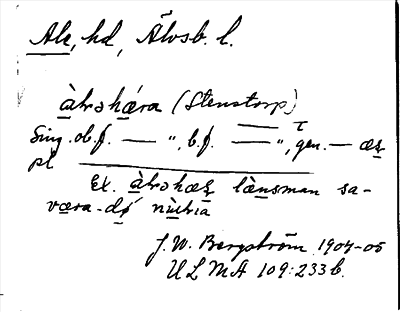 Ale, hd, Älvsb. l.
àlrəhǽra (Stenstorp)
Sing. ob. f. — ", b. f. — ", gen. — æs
pl
Ex. àlrəhæs lænsman sa-
væra-dǿ nùtria
J. W. Bergström 1904-05
ULMA 109:233 b.